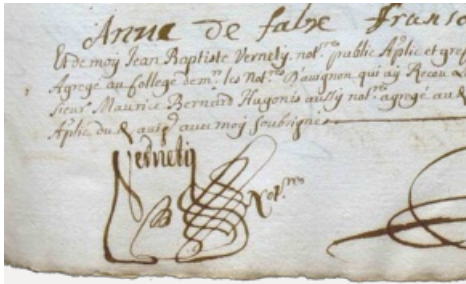 Anne de fabre Franso
Et de moy Jean Baptiste Vernety, not.re public Aplic et gref
Agregé au College de m.rs les Not.res D'avignon qui ay Receu
sieur Maurice Bernard Hugonis aussy not.re agregé au
Aplic du avec moy soubsigné
Vernety
Not.re